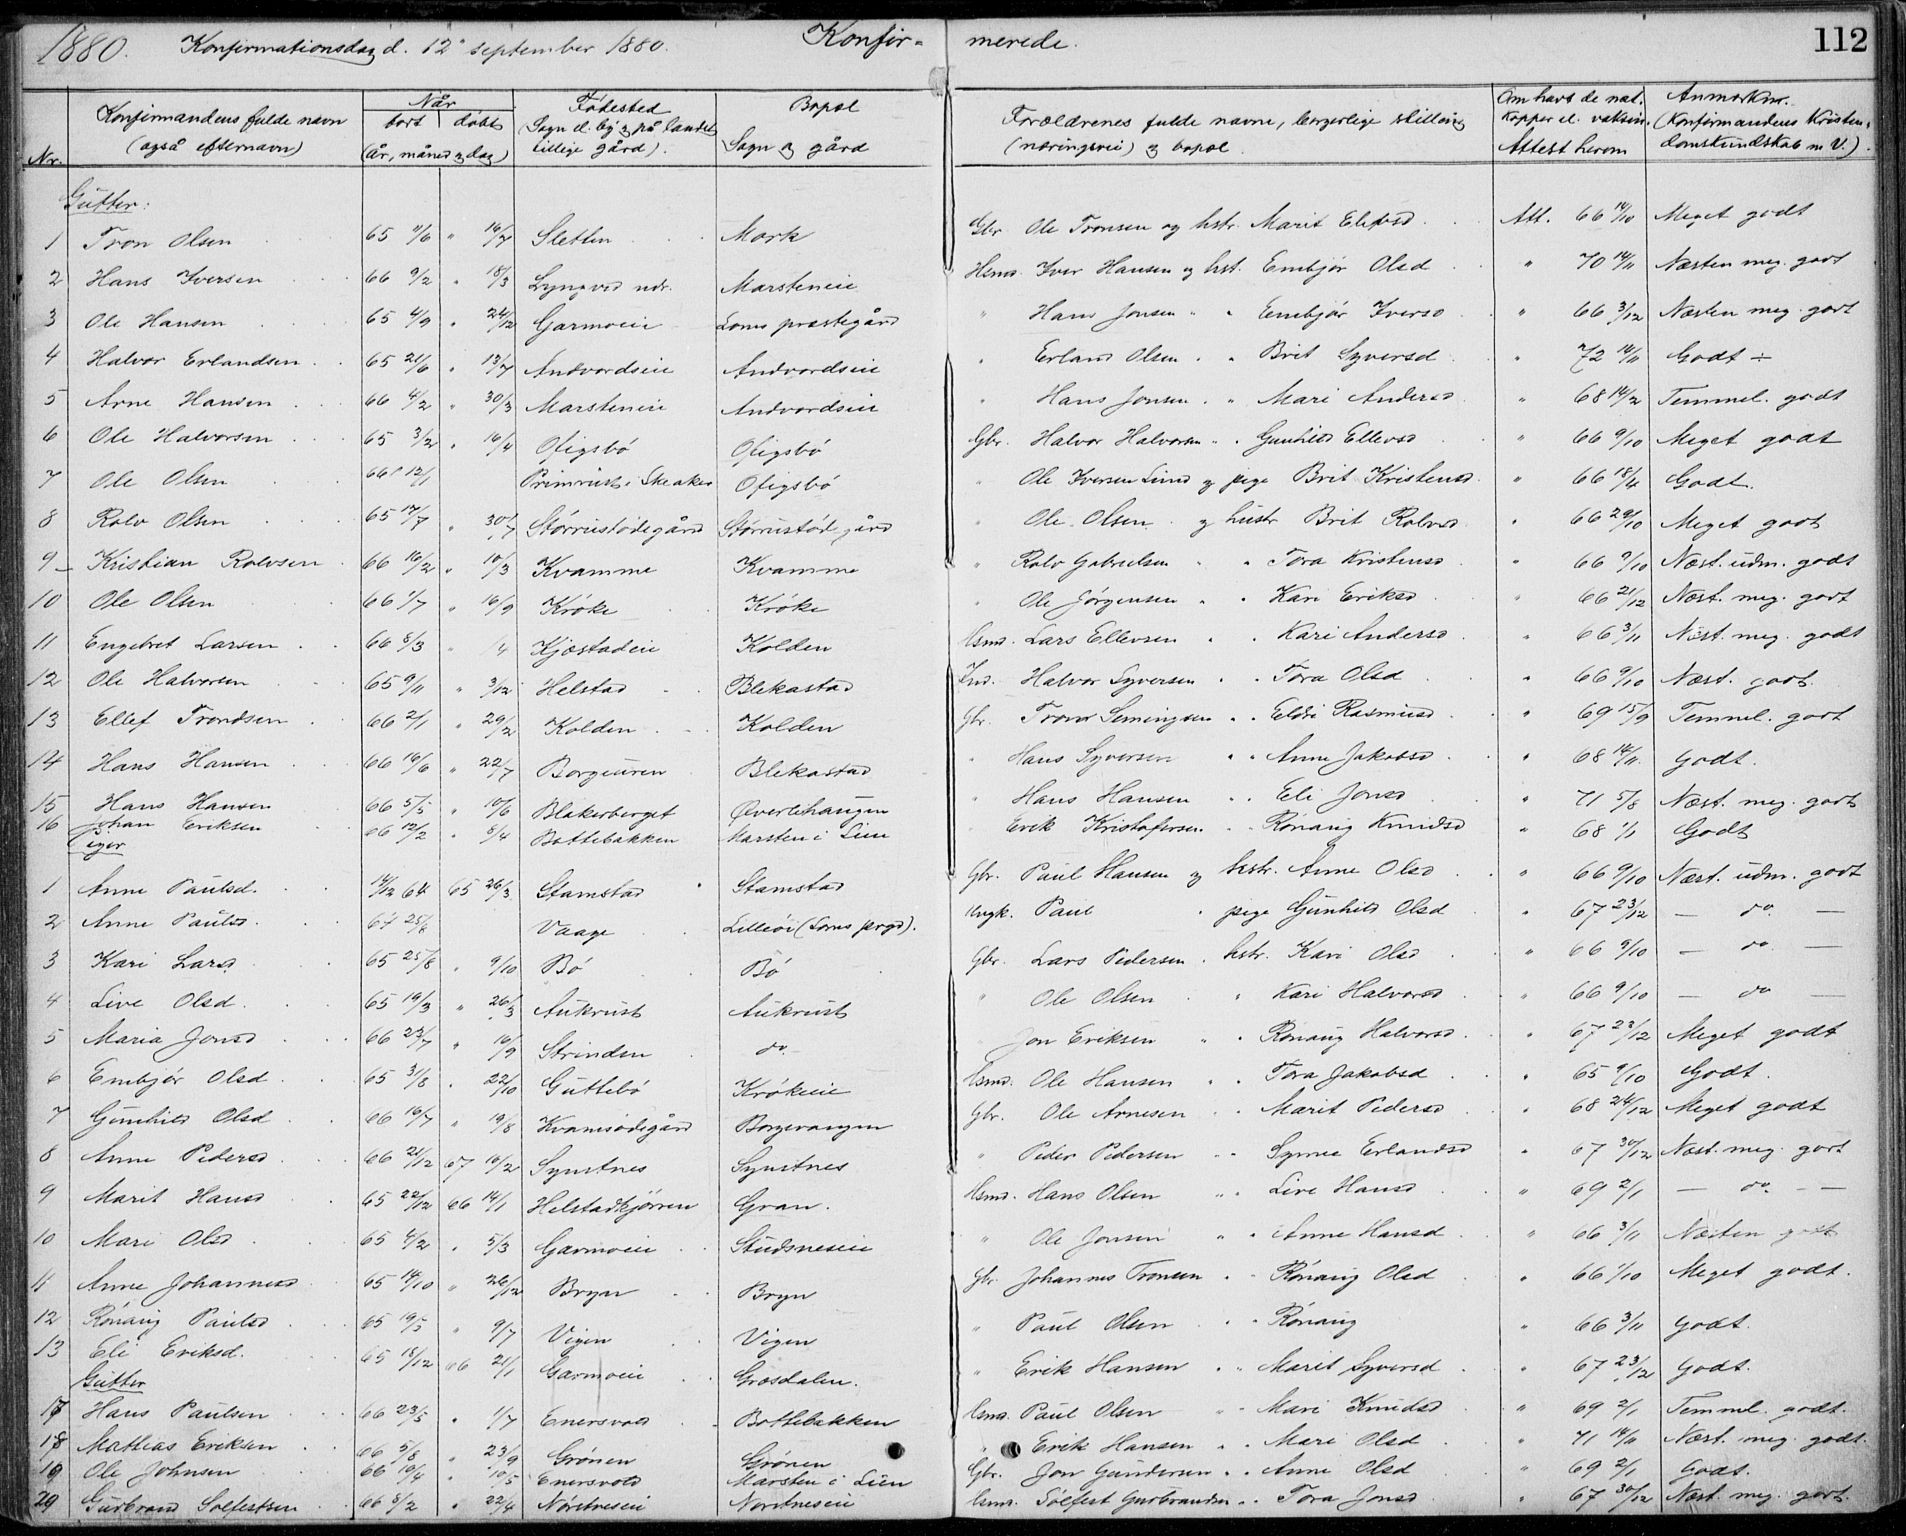 1880. Konfirmationsdag d. 12te september 1880. Konfir- merede. 112
Nr. Konfirmandens fulde navn (også efternavn) Når født døbt (år, måned og dag) Fødested (Sogn el. by og på landet tillige gård). Bopæl Sogn og gård Forældrenes fulde navne, borgerlige stilling (næringsvei) og bopæl. Om havt de nat. kopper el. vaksin. Attest herom Anmærkn. (Konfirmandens Kristendomskundskab m V.).
Gutter:
1 Tron Olsen 65 11/6 " 16/7 Sletten Mork Gbr. Ole Tronsen og hstr. Marit Elefsd Att. 66 14/10 Meget godt
2 Hans Iversen 66 9/2 " 18/3 Lyngved ndr. Marsteneie Hsmd. Iver Hansen og hst. Embjør Olsd " 70 14/11 Næsten meg. godt
3 Ole Hansen 65 4/9 " 24/12 Garmoeie Loms præstegård " Hans Jonsen " " Embjør Iversd " 66 3/12 Næsten meg. godt
4 Halvor Erlandsen 65 21/6 " 13/7 Andvordseie Andvordseie " Erland Olsen " " Brit Syversd " 72 14/11 Godt ÷
5 Arne Hansen 66 4/2 " 30/3 Marsteneie Andvordseie " Hans Jonsen " " Mari Andersd " 68 14/2 Temmel. godt
6 Ole Halvorsen 65 3/2 " 16/4 Ofigsbø Ofigsbø Gbr. Halvor Halvorsen " " Gunhild Ellevsd " 66 9/10 Meget godt
7 Ole Olsen 66 12/1 Primrust i Skeaker Ofigsbø " Ole Iversen Lund og pige Brit Kristensd " 66 18/4 Godt.
8 Rolv Olsen 65 17/7 " 30/7 Størrustødegård Størrustød. gård " Ole Olsen og hustr Brit Rolvsd " 66 29/10 Meget godt
9 Kristian Rolvsen 66 16/2 " 10/3 Kvamme Kvamme " Rolv Gabrielsen " " Tora Kristensd " 66 9/10 Næst. udm. godt
10 Ole Olsen 66 1/7 " 16/9 Krøke Krøke " Ole Jørgensen " " Kari Eriksd " 66 21/12 Næst. meg. godt
11 Engebret Larsen 66 8/3 " /4 Kjæstadeie Kolden Hsmd. Lars Ellevsen " " Kari Andersd " 66 3/11 Næst. meg. godt
12 Ole Halvorsen 65 9/11 " 3/12 Helstad Blekastad Ind. Halvor Syversen " " Tora Olsd " 66 9/10 Næst. godt.
13 Ellef Trondsen 66 2/1 " 29/2 Kolden Kolden Gbr. Tron Semingsen " " Eldri Rasmusd " 69 15/9 Temmel. godt
14 Hans Hansen 66 16/6 " 22/7 Borgeuren Blekastad " Hans Syversen " " Anne Jakobsd " 68 14/11 godt.
15 Hans Hansen 66 5/5 " 10/6 Blakerberget Øverlihaugen " Hans Hansen " " Eli Jonsd " 71 5/8 Næst. meg. godt
16 Johan Eriksen 66 12/2 " 8/4 Bottebakken Marsten i Lien " Erik Kristofersen " " Rønaug Knudsd " 68 1/1 Godt
Piger
1 Anne Paulsd. 14/12 64 65 26/3 Stamstad Stamstad Gbr. Paul Hansen og hstr. Anne Olsd " 66 9/10 Næst. udm. godt
2 Anne Paulsd 67 25/ Vaage Lilleøi (Loms prgd). Ungk. Paul " pige Gunhild Olsd " 67 23/12 — do. —
3 Kari Larsd 65 25/8 " 9/10 Bø Bø Gbr. Lars Pedersen " hstr. Kari Olsd " 66 9/10 — do —
4 Live Olsd. 65 19/3 " 26/3 Aukrust Aukrust " Ole Olsen " Kari Halvorsd " 66 9/10 — do —
5 Maria Jonsd 66 23/7 " 16/9 Strinden do. Jon Eriksen " " Rønaug Halvorsd " 67 23/12 Meget godt
6 Embjør Olsd 65 31/8 " 22/10 Guttebø Krøkeeie Hsmd. Ole Hansen " " Tora Jakobsd " 65 9/10 Godt.
7 Gunhild Olsd 66 16/7 " 19/8 Kvamsødegård Borgevangen Gbr. Ole Arnesen " " Marit Pedersd " 68 24/12 Meget godt
8 Anne Pedersd 66 21/12 67 16/2 Synstnes Synstnes " Peder Pedersen " " Synne Erlandsd " 67 30/12 Næst. meg. godt
9 Marit Hansd 65 22/12 66 14/1 Helstadkjørren Gran. Hsmd. Hans Olsen " " Live Hansd " 69 2/1 — do. —
10 Mari Olsd 65 4/2 " 5/3 Garmoeie Studsneseie " Ole Jonsen " " Anne Hansd " 66 3/11 Næsten godt
11 Anne Johannesd 65 14/10 " 26/12 Bryn Bryn Gbr. Johannes Tronsen " " Rønaug Olsd " 66 1/10 Meget godt.
12 Rønaug Paulsd 65 19/5 " 9/7 Vigen Vigen " Paul Olsen " " Rønaug " 66 3/11 godt.
13 Eli Eriksd. 65 18/12 66 21/1 Garmoeie Grosdalen. " Erik Hansen " " Marit Syversd " 67 23/12 godt.
Gutter
17 Hans Paulsen 66 23/5 " 1/7 Enersvold Bottebakken Hsmd. Paul Olsen " " Mari Knudsd " 69 2/1 Temml. godt.
18 Mathias Eriksen 66 5/8 " 23/9 Grønen Grønen " Erik Hansen " " Mari Olsd " 71 14/11 Næst. meg. godt.
19 Ole Johnsen 66 16/4 " 10/5 Enersvold Marsten i Lien Gbr. Jon Gundersen " " Anne Olsd " 69 2/1 godt.
20 Gudbrand Solfestsen 66 8/2 " 22/4 Nordneseie Nordneseie Hsmd. Solfest Gudbrandsen " " Tora Jonsd " 67 30/12 Næst. meg. godt.